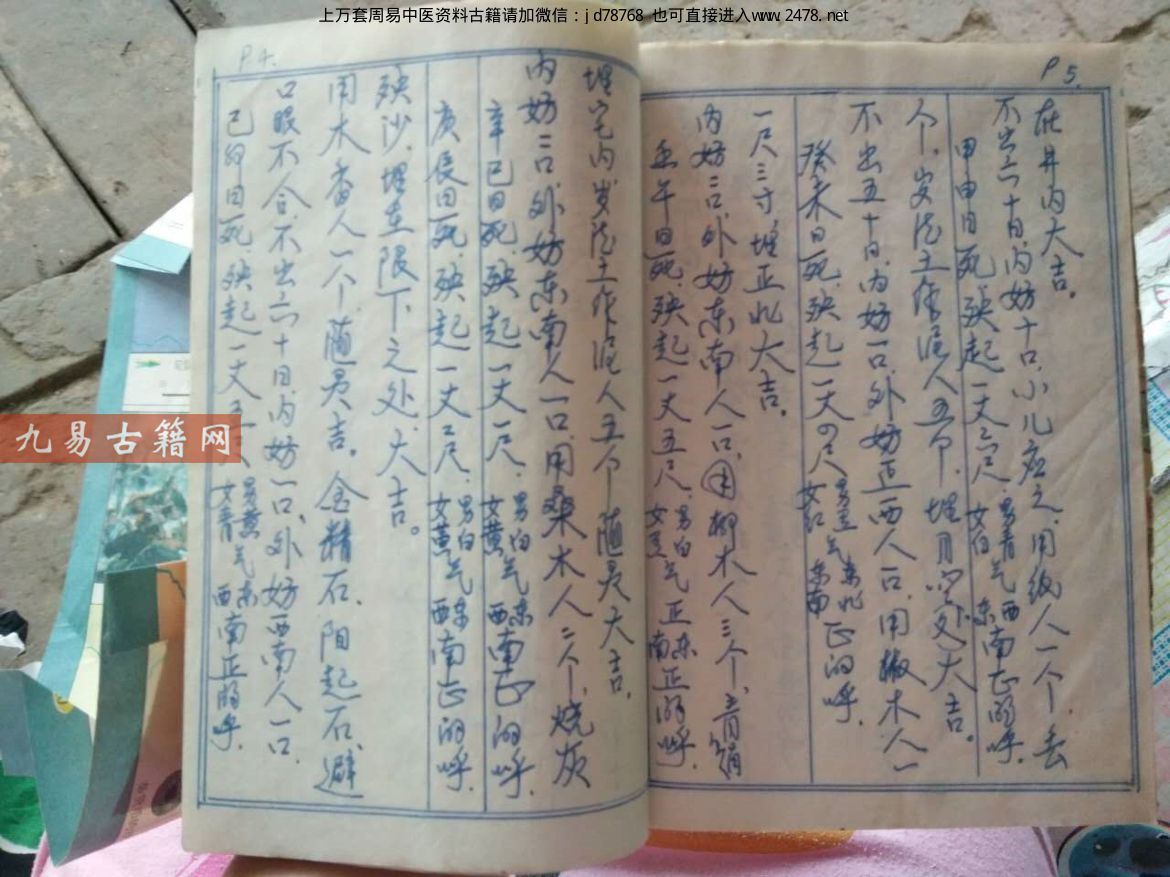 上万套周易中医资料古籍请加微信：jd78768 也可直接进入www.2478.net
P 5.
在井内大吉。
不出六十日，内妨十口，小儿应之，用纸人一个，丢
甲申日死，殃起一丈六尺，男青女白气西东南正的呼，
个，岁泥土作泥人五个，埋月处大吉。
不出五十日，内妨一口，外妨正西人口，用椒木人一
癸未日死，殃起一丈四尺 男黑女红气东北东南正的呼，
一尺三寸，埋正北大吉。
内妨二口，外妨东南人一口，用柳木人三个，青绢
壬午日死，殃起一丈五尺，男白女黑气正东南正的呼，
P 4.
埋宅内，岁泥土作泥人五个，随灵大吉。
内妨二口，外妨东南人一口，用桑木人二个，烧灰
辛巳日死，殃起一丈一尺，男白女黄气东西南正的呼，
庚辰日死，殃起一丈二尺，男白女黄气东西南正的呼，
殃沙，埋在限下之处，大吉。
用木香人一个，随灵吉。金精石、阳起石、避
口眼不合，不出六十日，内妨一口，外妨西南人一口
己卯日死，殃起一丈 男黄女青气东西南正的呼，
九易古籍网